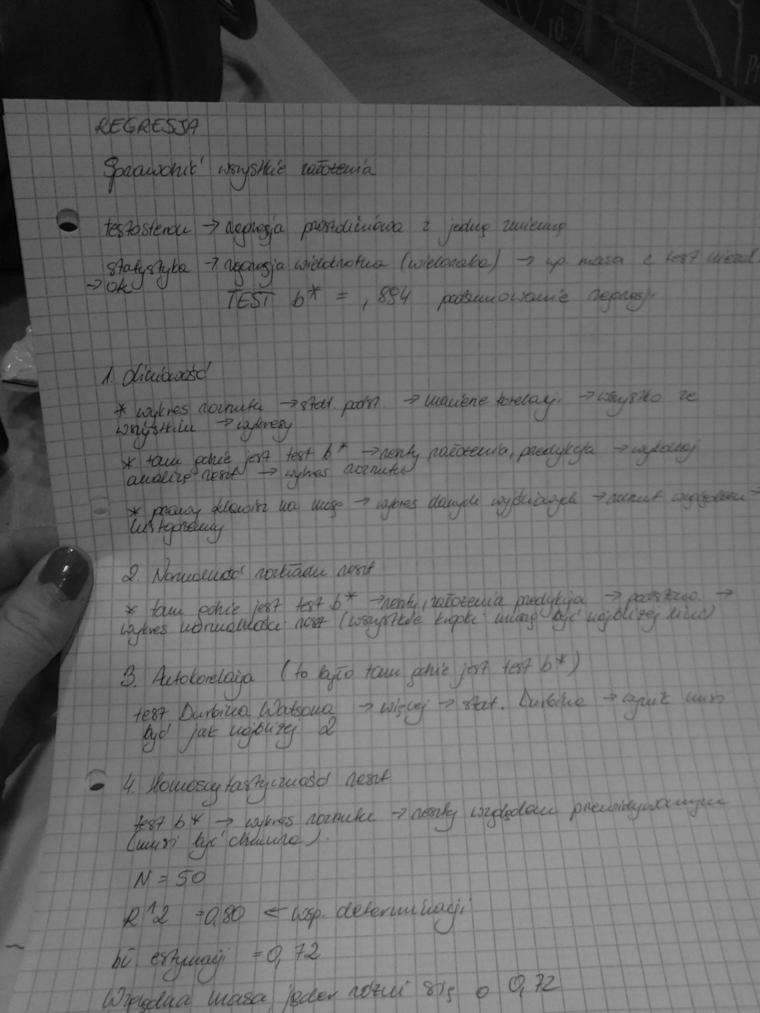 REGRESJA
Sprawdzić wszystkie założenia
testosteron → regresja prostoliniowa z jedną zmienną
statystyka → regresja wielokrotna (wieloraka) → np masa c test
→ OK
TEST b* = ,894 podsumowanie regresji
1. Liniowość
* wykres rozrzutu → stat. podst. → macierze korelacji → wszystko ze
wszystkim → wykresy
* tam gdzie jest test b* → reszty, założenia, predykcja → wykonaj
analizę reszt → wykres rozrzutu
* prawy klawisz na mysz → wykres danych wejściowych → rozrzut względem →
histogramy
2. Normalność rozkładu reszt
* tam gdzie jest test b* → reszty, założenia predykcja → podstaw. →
wykres normalności reszt (wszystkie kropki muszą być najbliżej linii)
3. Autokorelacja (to było tam gdzie jest test b*)
test Durbina Watsona → więcej → stat. Durbina → wynik musi
być jak najbliżej 2
4. Homoscytastyczność reszt
test b* → wykres rozrzutu → reszty względem przewidywanych
(musi być chmura).
N = 50
R^2 = 0,80 ← wsp. determinacji
bł. estymacji = 0,72
Względna masa jąder różni się o 0,72
10.